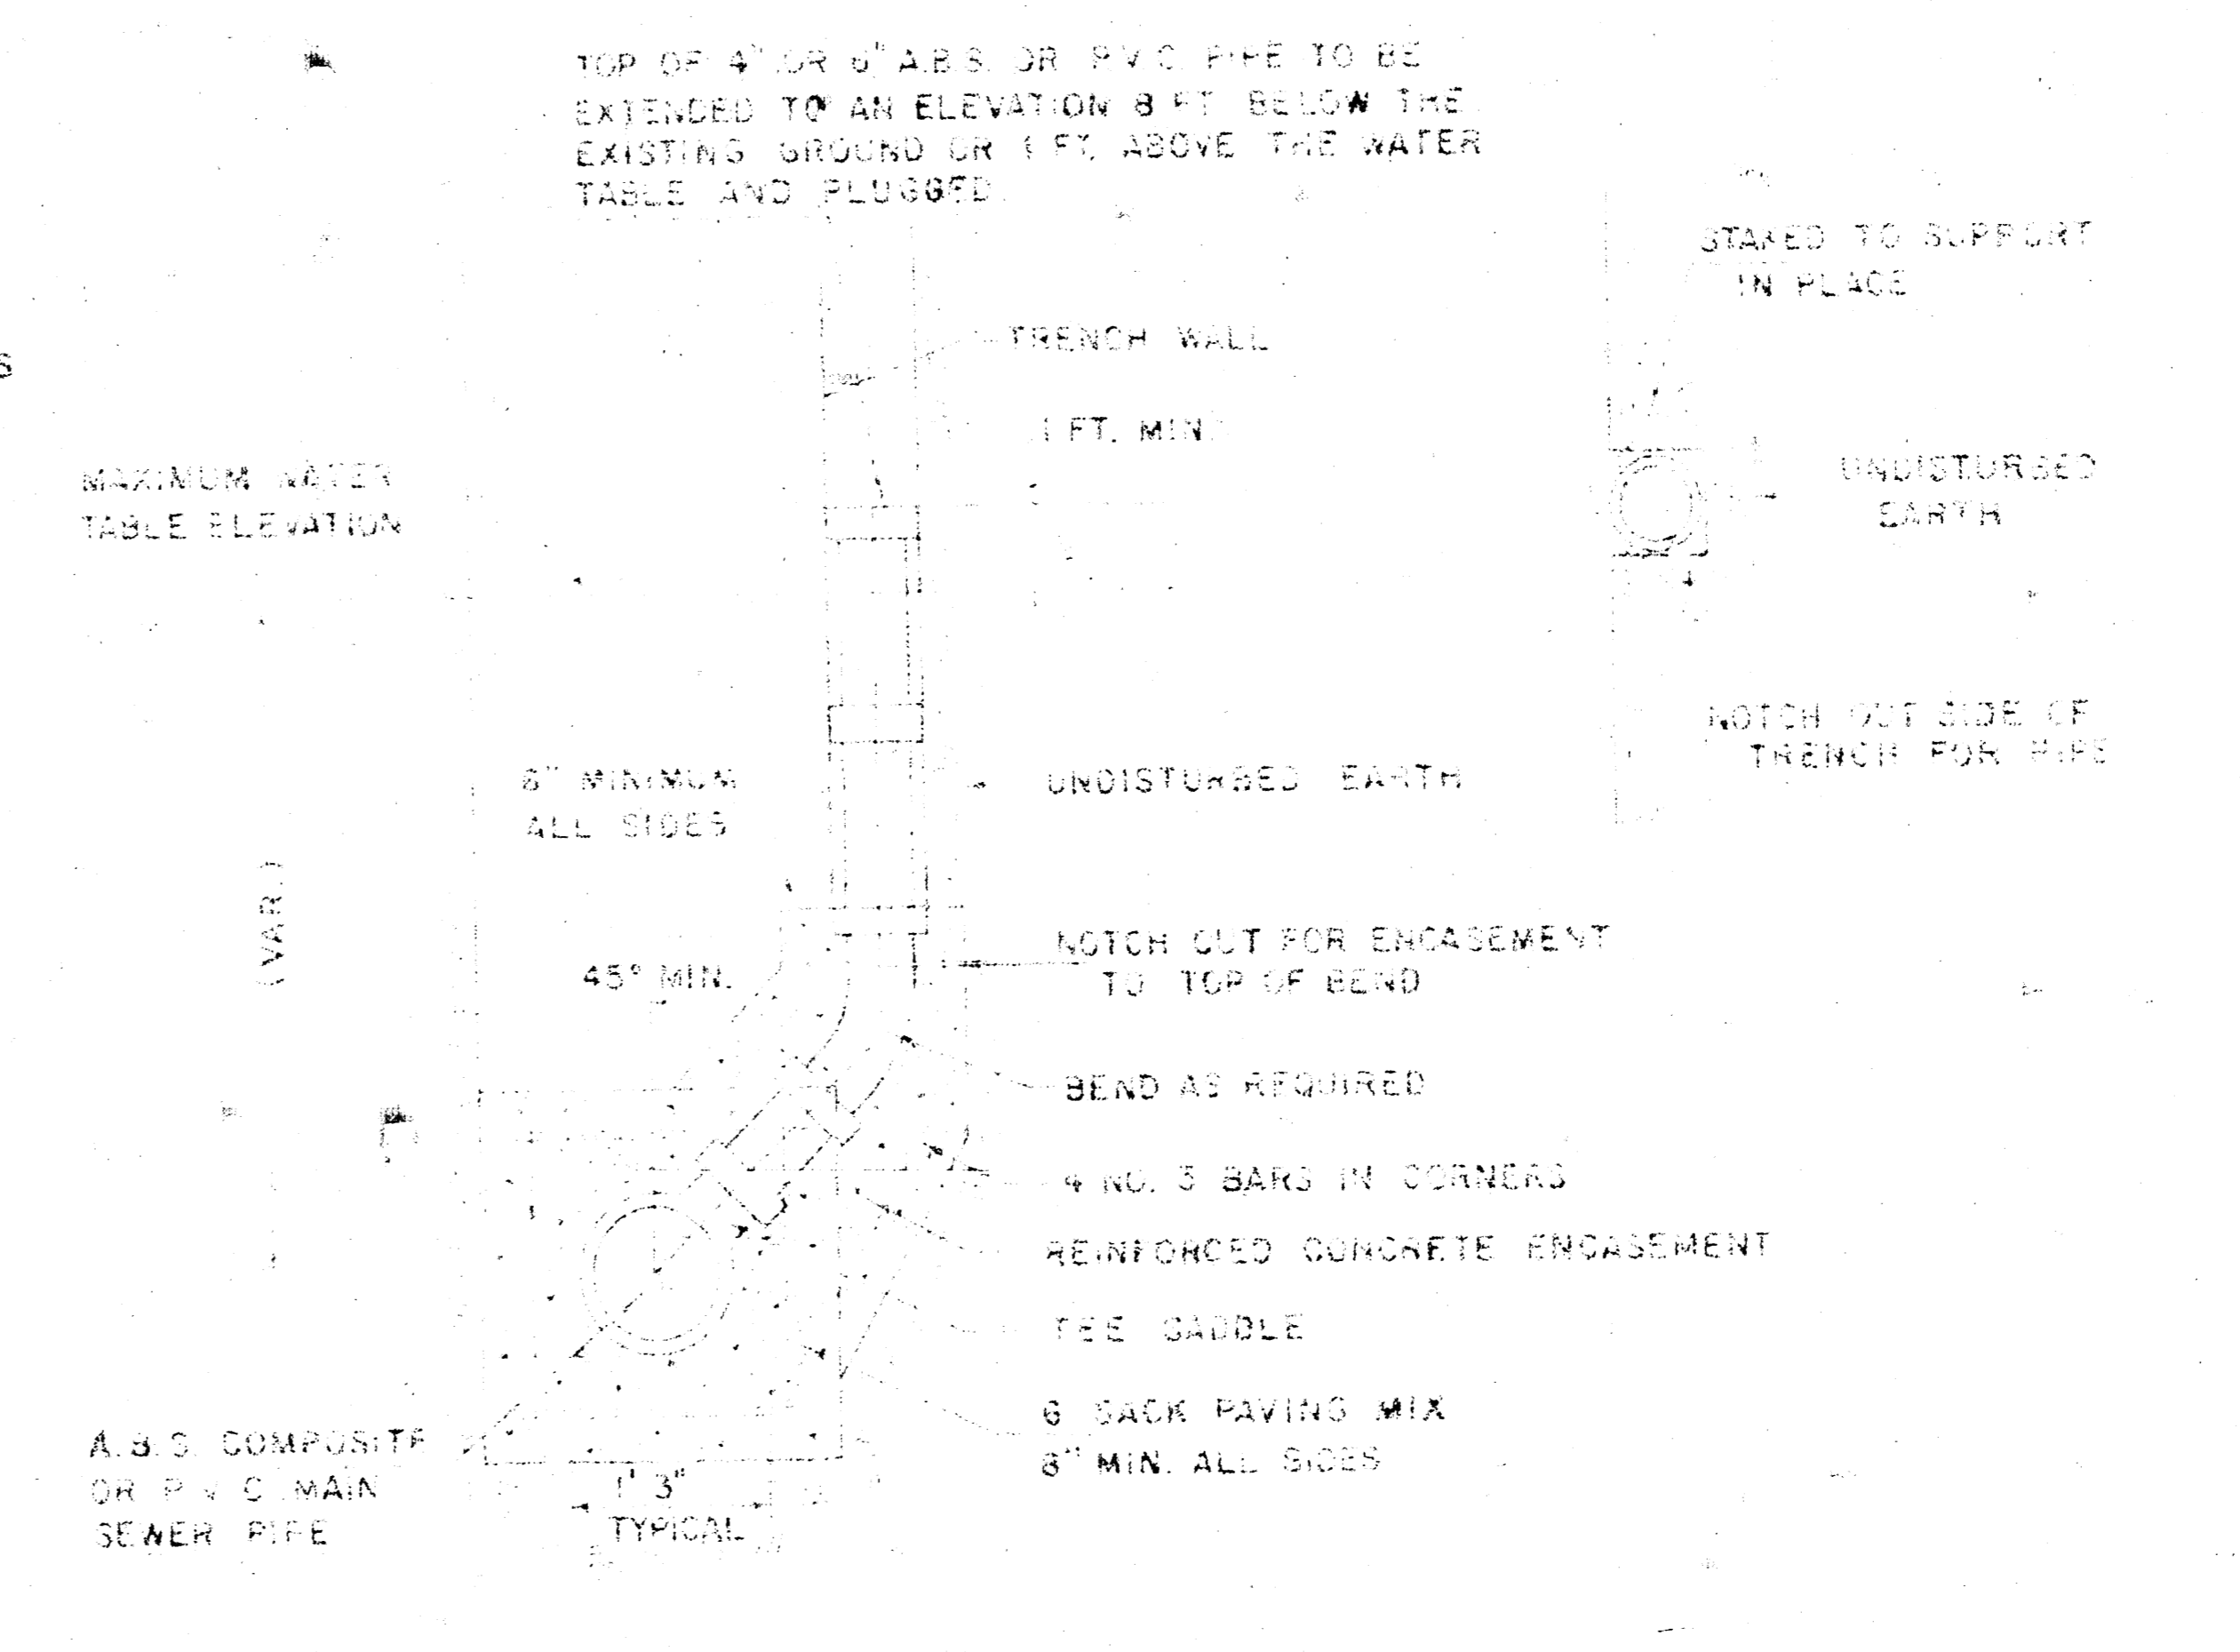 TOP OF 4" OR 6" A.B.S. OR P.V.C. PIPE TO BE
EXTENDED TO AN ELEVATION 8 FT. BELOW THE
EXISTING GROUND OR 1 FT. ABOVE THE WATER
TABLE AND PLUGGED.
STAKED TO SUPPORT
IN PLACE
TRENCH WALL
S
1 FT. MIN.
MAXIMUM WATER
TABLE ELEVATION
UNDISTURBED
EARTH
NOTCH OUT SIDE OF
TRENCH FOR PIPE
MINIMUM
ALL SIDES
UNDISTURBED EARTH
(VAR.)
45° MIN.
NOTCH OUT FOR ENCASEMENT
TO TOP OF BEND
BEND AS REQUIRED
4 NO. BARS IN CORNERS
REINFORCED CONCRETE ENCASEMENT
TEE SADDLE
6 SACK PAVING MIX
MIN. ALL SIDES
A.B.S. COMPOSITE
OR P.V.C. MAIN
SEWER PIPE
1' 3"
TYPICAL